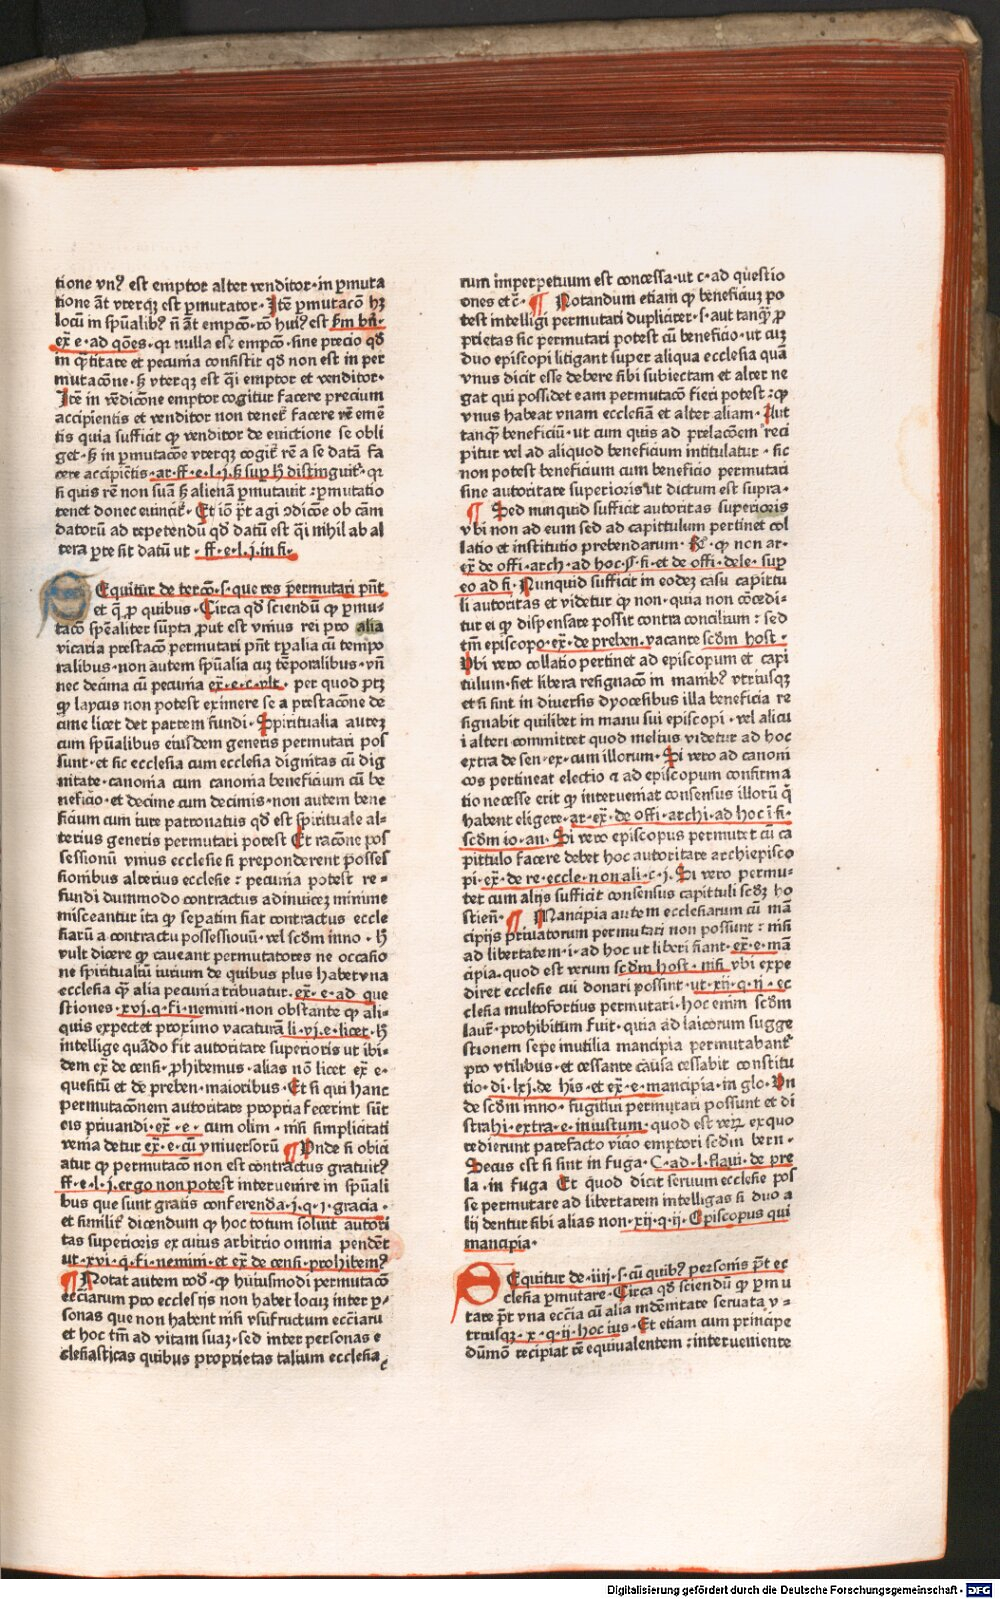 tione vn⁹ est emptor alter venditor·in ꝑmuta
tione āt vterqꝫ est ꝑmutator·Itē ꝑmutacō hꝫ
locū in spūalibꝰ nō āt empcō·rō huiꝰ est ẜm bń·
ex̄ e·ad qōes·qꝛ nulla est empcō·sine precio qd̄
in q̄ntitate et pecunia consistit qd̄ non est in per
mutacōne·ꜩ vterqꝫ est q̄i emptor et venditor·
Itē in vēdicōne emptor cogitur facere precium
accipientis et venditor non tenetᷣ facere rē emē
tis quia sufficit ꝙ venditor de euictione se obli
get·ꜩ in ꝑmutacōe vterqꝫ cogitᷣ rē a se datā fa
cere accipiētis·ar·ff·e·l·j·ꜩ suꝑ h̄ distinguitᷣ·qꝛ
si quis rē non suā ꜩ alienā ꝑmutauit ꝛꝑmutatio
tenet donec euincitᷣ·Et iō pt̄ agi ꝯdicōe ob cām
datorū ad repetendū qd̄ datū est q̄i nihil ab al
tera ꝑte sit datū ut·ff·e·l·j·in fi·
SEquitur de tercō·s·que res permutari pn̄t
et q̄ ꝓ quibus·Circa qd̄ sciendū ꝙ ꝑmu-
tacō spēaliter sūpta ꝓut est vnius rei pro alia
vicaria prestacō permutari pn̄t tp̄alia cū tempo
ralibus·non autem spūalia cuꝫ tēporalibus·vn̄
nec decima cū pecunia ex̄·e·c·vlt·per quod ptꝫ
ꝙ laycus non potest eximere se a prestacōne de
cime licet det partem fundi·Spiritualia auteꝫ
cum spūalibus eiusdem generis permutari pos
sunt·et sic ecclesia cum ecclesia dignitas cū dig
nitate·canonia cum canonia beneficium cū be
neficio·et decime cum decimis·non autem bene
ficium cum iure patronatus qd̄ est spirituale al-
terius generis permutari potest Et racōne pos
sessionū vnius ecclesie si preponderent posses
sionibus alterius ecclesie : pecunia potest re-
fundi dummodo contractus adinuiceꝫ minime
misceantur ita ꝙ seꝑatim fiat contractus eccle
siarū a contractu possessionū·vel scd̄m inno·h̄
vult dicere ꝙ caueant permutatores ne occasio
ne spiritualiū iurium de quibus plus habet vna
ecclesia q̄ alia pecunia tribuatur·ex̄·e·ad que
stiones·xvj·q·fi·nemini·non obstante ꝙ ali-
quis expectet proximo vacaturā li·vj·e·licet·h̄
intellige quādo fit autoritate superioris ut ibi-
dem ex̄ de censi·ꝓhibemus·alias nō licet ex̄ e·
quesitū et de preben·maioribus·Et si qui hanc
permutacōnem autoritate propria fecerint sūt
eis priuandi·ex̄·e·cum olim·nisi simplicitati
venia detur ex̄·e·cū vniuersorū ¶Vnde si obici
atur ꝙ permutacō non est contractus gratuitꝰ
ff·e·l·j·ergo non potest interuenire in spūali
bus que sunt gratis conferenda·j·q·j·gracia·
et similitᷣ dicendum ꝙ hoc totum soluit autori
tas superioris ex cuius arbitrio omnia pendēt
ut·xvi·q·fi·nemini·et ex̄ de censi·prohibemꝰ
¶Notat autem rod·ꝙ huiusmodi permutacō
ecc̄iarum pro ecclesijs non habet locuꝫ inter ꝑ-
sonas que non habent nisi vsufructum ecc̄iarū
et hoc tm̄ ad vitam suaꝫ·sed inter personas e
clesiasticas quibus proprietas talium ecclesia
rum imperpetuum est concessa·ut c·ad questio
ones etc̄·¶Notandum etiam ꝙ beneficiuꝫ po
test intelligi permutari dupliciter·s·aut tanq̄ ꝓ
prietas sic permutari potest cū beneficio·ut cuꝫ
duo episcopi litigant super aliqua ecclesia quā
vnus dicit esse debere sibi subiectam et alter ne
gat qui possidet eam permutacō fieri potest : ꝙ
vnus habeat vnam ecclesiā et alter aliam·Aut
tanq̄ beneficiū·ut cum quis ad prelacōem reci
pitur vel ad aliquod beneficium intitulatur·sic
non potest beneficium cum beneficio permutari
sine autoritate superioris ut dictum est supra·
¶Sed nunquid sufficit autoritas superioris
vbi non ad eum sed ad capittulum pertinet col
latio et institutio prebendarum·R̄·ꝙ non ar·
ex̄ de offi·arch·ad hoc·§·fi·et de offi·dele·suꝑ
eo ad fi·Nunquid sufficit in eodeꝫ casu capittu
li autoritas et videtur ꝙ non·quia non cōcedi-
tur ei ꝙ dispensare possit contra concilium : sed
tm̄ episcopo·ex̄·de preben·vacante scd̄m host·
Vbi vero collatio pertinet ad episcopum et capi
tulum·fiet libera resignacō in manibꝰ vtriusqꝫ
et si sint in diuersis dyocesibus illa beneficia re
signabit quilibet in manu sui episcopi·vel alicu
i alteri committet quod melius videtur ad hoc
extra de sen·ex·cum illorum·Si vero ad canoni
cos pertineat electio ⁊ ad episcopum confirma
tio necesse erit ꝙ interueniat consensus illorū q̄
habent eligere·ar·ex̄·de offi·archi·ad hoc ī fi·
scd̄m io·an·Si vero episcopus permutet cū ca
pittulo facere debet hoc autoritate archiepisco
pi·ex̄·de re·eccle·non ali·c·j·Si vero permu-
tet cum alijs sufficit consensus capittuli scd̄ꝫ ho
stien̄·¶Mancipia autem ecclesiarum cū mā
cipijs priuatorum permutari non possunt : nisi
ad libertatem·i·ad hoc ut liberi fiant·ex̄·e·mā
cipia·quod est verum scd̄m host·nisi vbi expe
diret ecclesie cui donari possint·ut·xij·q·ij·ec
clesia multofortius permutari·hoc enim scd̄m
laur̄·prohibitum fuit·quia ad laicorum sugge
stionem sepe inutilia mancipia permutabantᷣ
pro vtilibus·et cessante causa cessabit constitu
tio·di·lxj·de his·et ex̄·e·mancipia·in glo·Vn
de scd̄m inno·fugitiui permutari possunt et di
strahi·extra·e·iniustum·quod est verꝫ exquo
redierunt patefacto vicio emptori scd̄m bern·
Secus est si sint in fuga·C·ad·l·flaui·de pre
la·in fuga Et quod dicit seruum ecclesie pos
se permutare ad libertatem intelligas si duo a
lij dentur sibi alias non·xij·q·ij·Episcopus qui
mancipia·
SEquitur de·iiij·s·cū quibꝰ personis pt̄ ec
clesia ꝑmutare·Circa qd̄ sciendū ꝙ ꝑmu
tare pt̄ vna ecc̄ia cū alia indēnitate seruata v-
triusqꝫ·x·q·ij·hoc ius·Et etiam cum principe
dūmō recipiat rē equiualentem : interueniente
Digitalisierung gefördert durch die Deutsche Forschungsgemeinschaft - DFG